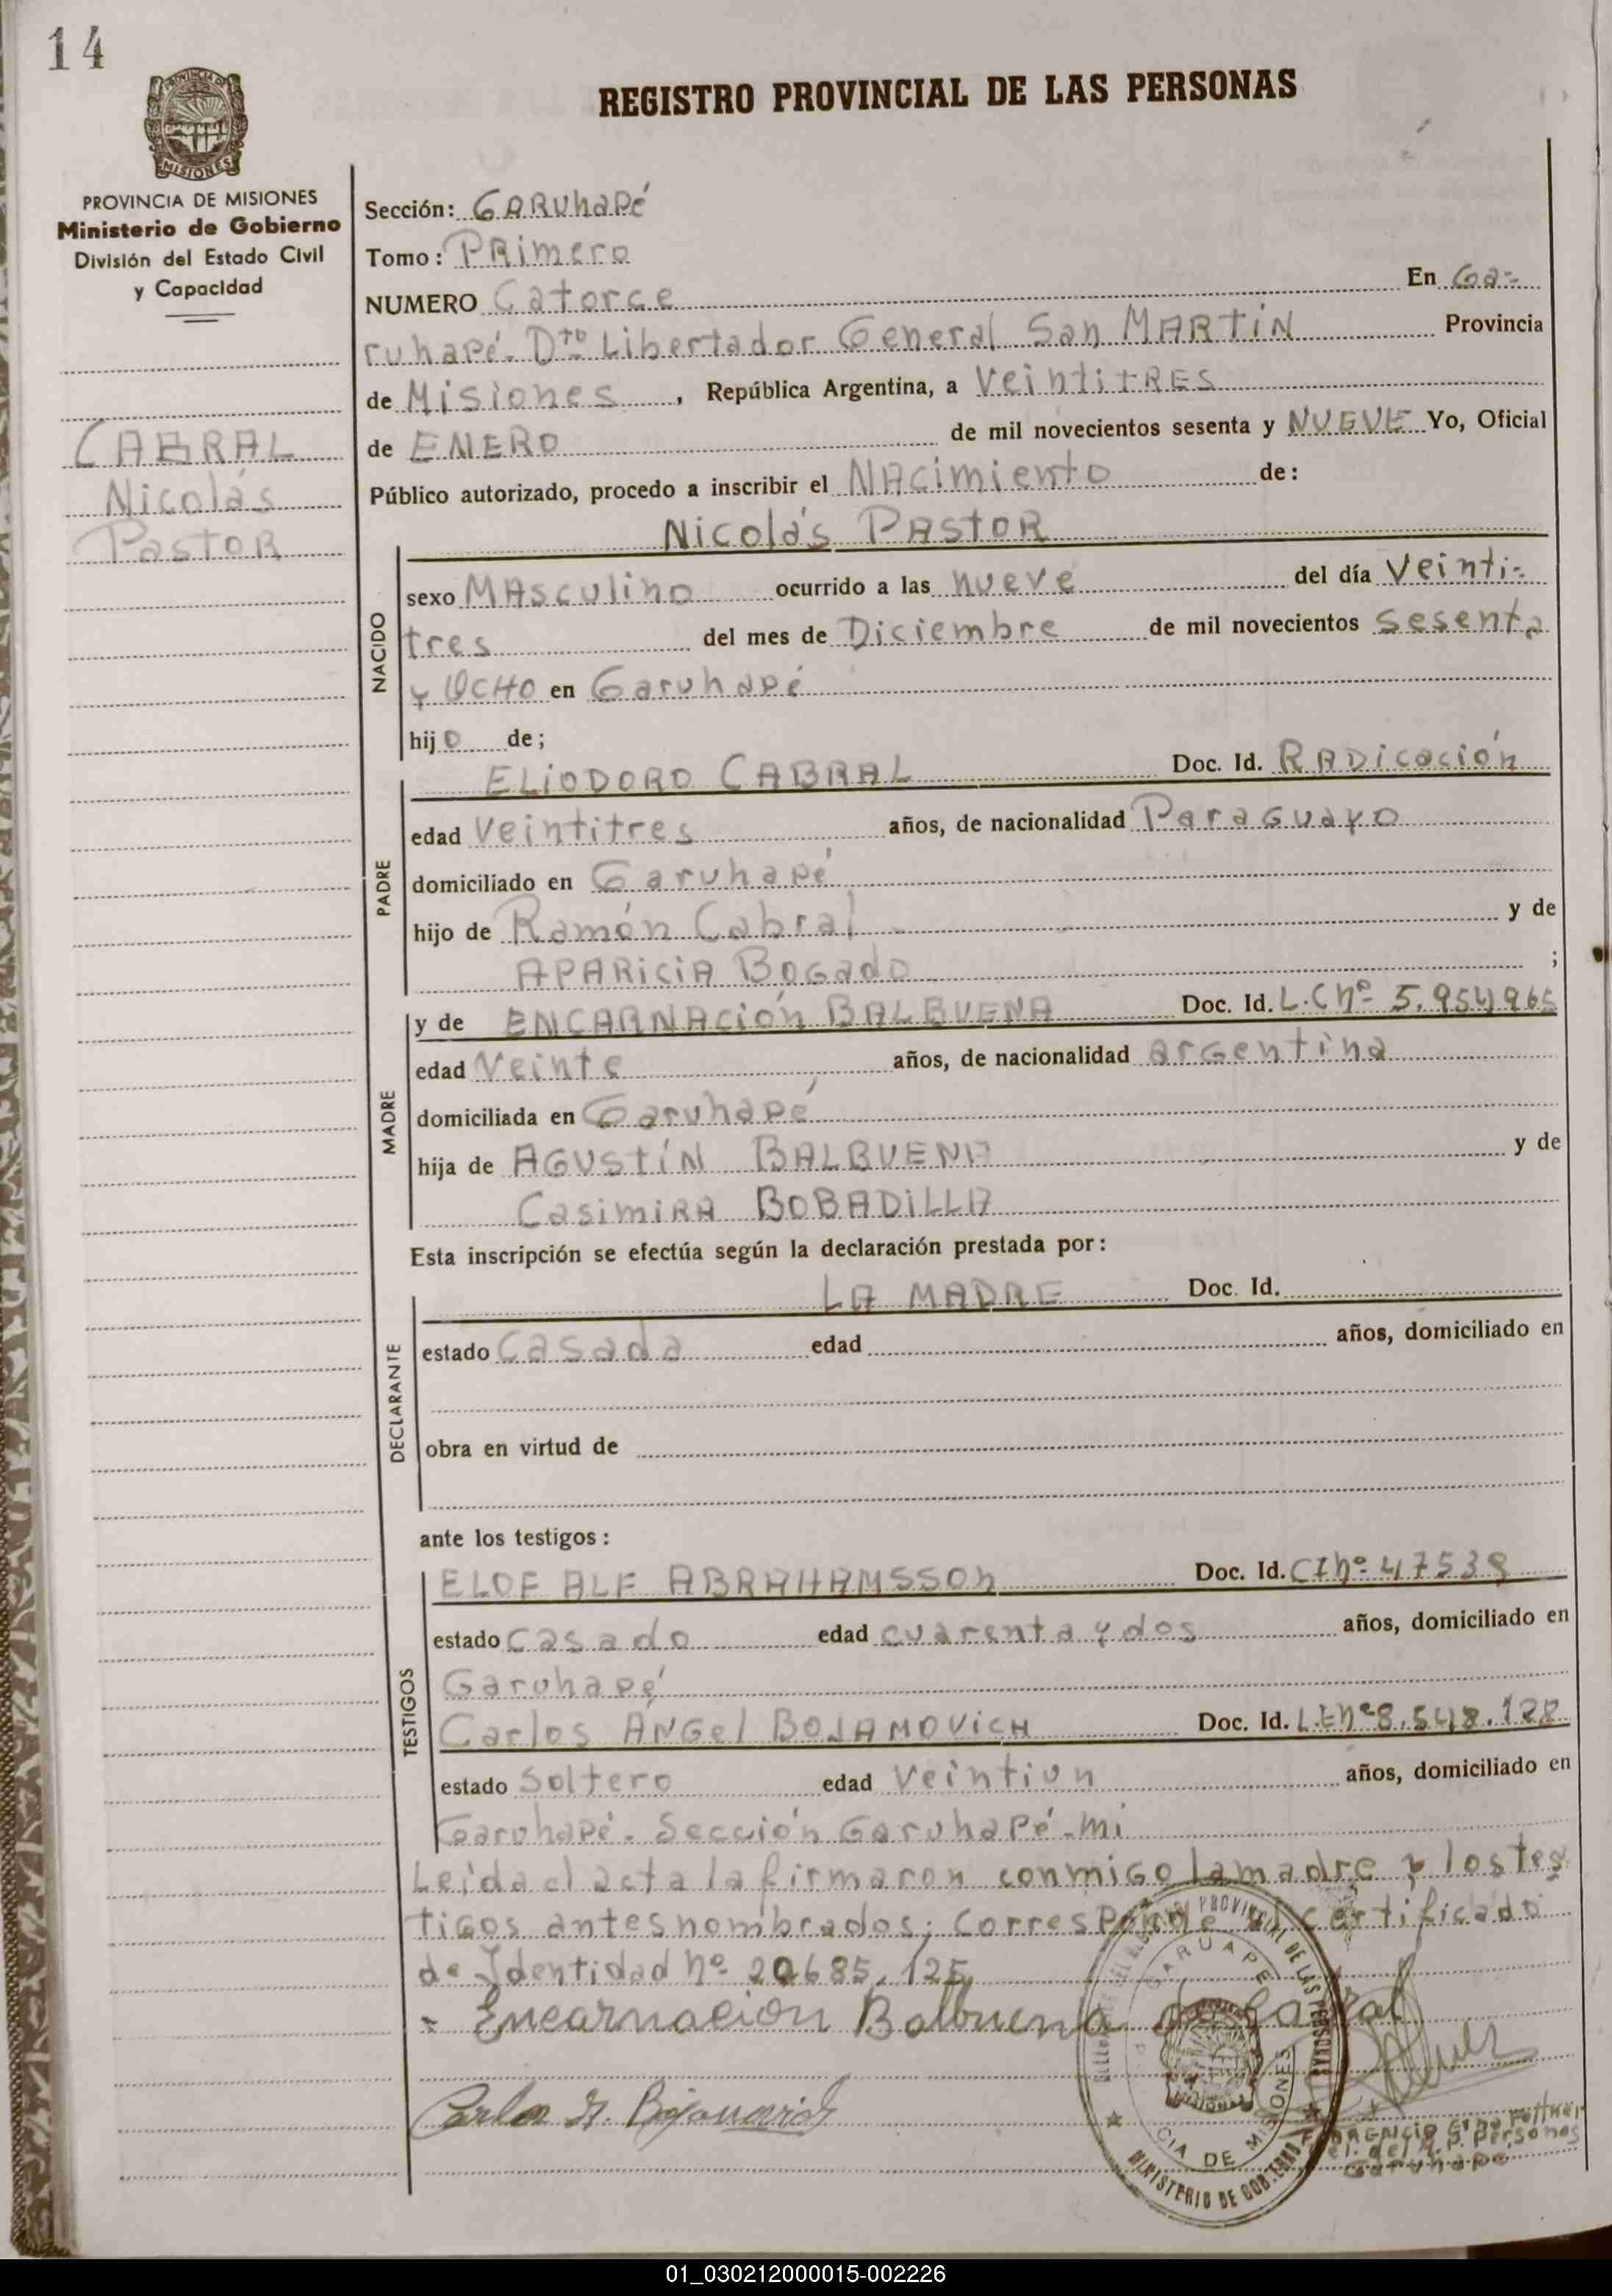 14
PROVINCIA DE
MISIONES
REGISTRO PROVINCIAL DE LAS PERSONAS
PROVINCIA DE MISIONES
Ministerio de Gobierno
División del Estado Civil
y Capacidad
CABRAL
Nicolás
Pastor
Sección: GARUhaPé
Tomo: PRimero
NUMERO Catorce En Ga-
ruhapé. Dto Libertador General San MARTÍN Provincia
de Misiones, República Argentina, a VeintitRES
de ENERO de mil novecientos sesenta y NUEVE Yo, Oficial
Público autorizado, procedo a inscribir el NAcimiento de:
Nicolás PAstoR
NACIDO
sexo MAsculino ocurrido a las nueve del día Veinti-
tres del mes de Diciembre de mil novecientos sesenta
y OCHO en Garuhapé
hijo de;
PADRE
ELiODORO CABRAL Doc. Id. RADicación
edad Veintitres años, de nacionalidad Paraguayo
domiciliado en Garuhapé
hijo de Ramón Cabral y de
APARiciA BOGado ;
MADRE
y de ENCARNAción BALBUENA Doc. Id. L.C nº 5.954965
edad Veinte años, de nacionalidad arGentina
domiciliada en Garuhapé
hija de AGUStíN BALBUENA y de
CasimiRA BOBADiLLA
Esta inscripción se efectúa según la declaración prestada por:
DECLARANTE
LA MADRE Doc. Id.
estado Casada edad años, domiciliado en
obra en virtud de
ante los testigos:
TESTIGOS
ELOF ALF ABRAHAMSSOn Doc. Id. CI nº 47538
estado Casado edad cuarenta y dos años, domiciliado en
Garuhapé
Carlos ÁNGel BOJANOVicH Doc. Id. L.E nº 8.548.122
estado Soltero edad Veintiun años, domiciliado en
Garuhapé. Sección Garuhapé-mi
Leida el acta la firmaron conmigo la madre y los tes
tigos antes nombrados; corresponde al certificado
de Identidad nº 20685.125
Encarnacion Balbuena de Cabral
Carlos A. Bojanovich
PROVINCIAL DE LAS PERSONAS
GARUAPE
MISIONES
CIA DE MISIONES
MINISTERIO DE GOBIERNO
del R. P. Personas
Garuhapé
01_030212000015-002226